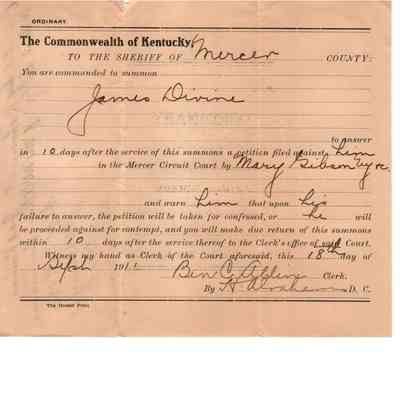 ORDINARY.
The Commonwealth of Kentucky,
TO THE SHERIFF OF Mercer COUNTY:
You are commanded to summon
James Divine
to answer
in 10 days after the service of this summons a petition filed against him
in the Mercer Circuit Court by Mary Gibson
and warn him that upon his
failure to answer, the petition will be taken for confessed, or he will
be proceeded against for contempt, and you will make due return of this summons
within 10 days after the service thereof to the Clerk's office of said Court.
Witness my hand as Clerk of the Court aforesaid, this 18th day of
Sept 191
Ben C. Allin Clerk.
By H. Abraham D. C.
The Herald Print.